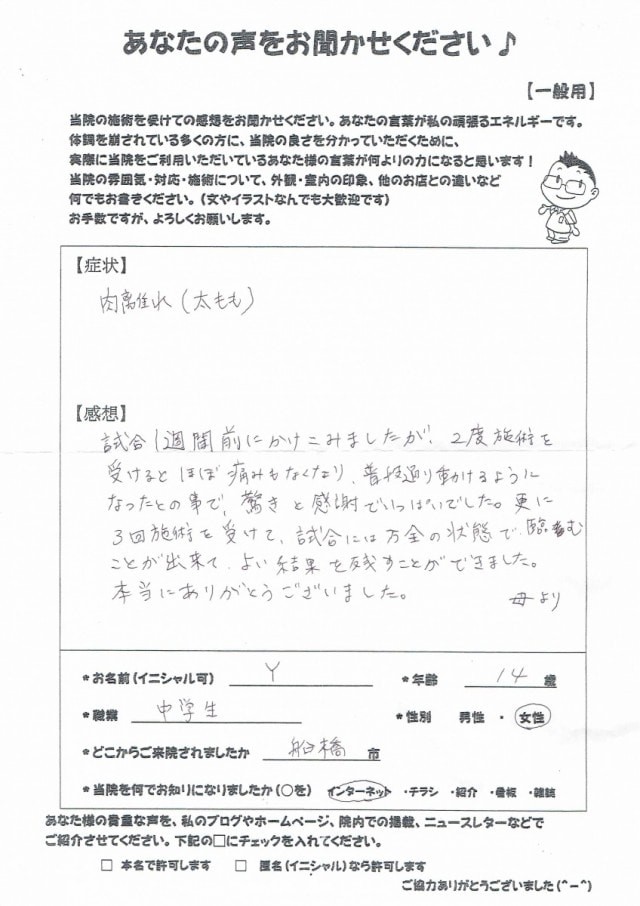 あなたの声をお聞かせください♪
【一般用】
当院の施術を受けての感想をお聞かせください。あなたの言葉が私の頑張るエネルギーです。
体調を崩されている多くの方に、当院の良さを分かっていただくために、
実際に当院をご利用いただいているあなた様の言葉が何よりの力になると思います！
当院の雰囲気・対応・施術について、外観・室内の印象、他のお店との違いなど
何でもお書きください。（文やイラストなんでも大歓迎です）
お手数ですが、よろしくお願いします。
【症状】
肉離れ（太もも）
【感想】
試合1週間前にかけこみましたが、2度施術を
受けるとほぼ痛みもなくなり、普段通り動けるように
なったとの事で、驚きと感謝でいっぱいでした。更に
3回施術を受けて、試合には万全の状態で臨む
ことが出来て、よい結果を残すことができました。
本当にありがとうございました。 母より
*お名前（イニシャル可） Y *年齢 14 歳
*職業 中学生 *性別 男性 ・ 女性
*どこからご来院されましたか 船橋 市
*当院を何でお知りになりましたか（○を） インターネット ・チラシ ・紹介 ・看板 ・雑誌
あなた様の貴重な声を、私のブログやホームページ、院内での掲載、ニュースレターなどで
ご紹介させてください。下記の□にチェックを入れてください。
□ 本名で許可します □ 匿名（イニシャル）なら許可します
ご協力ありがとうございました（^－^）